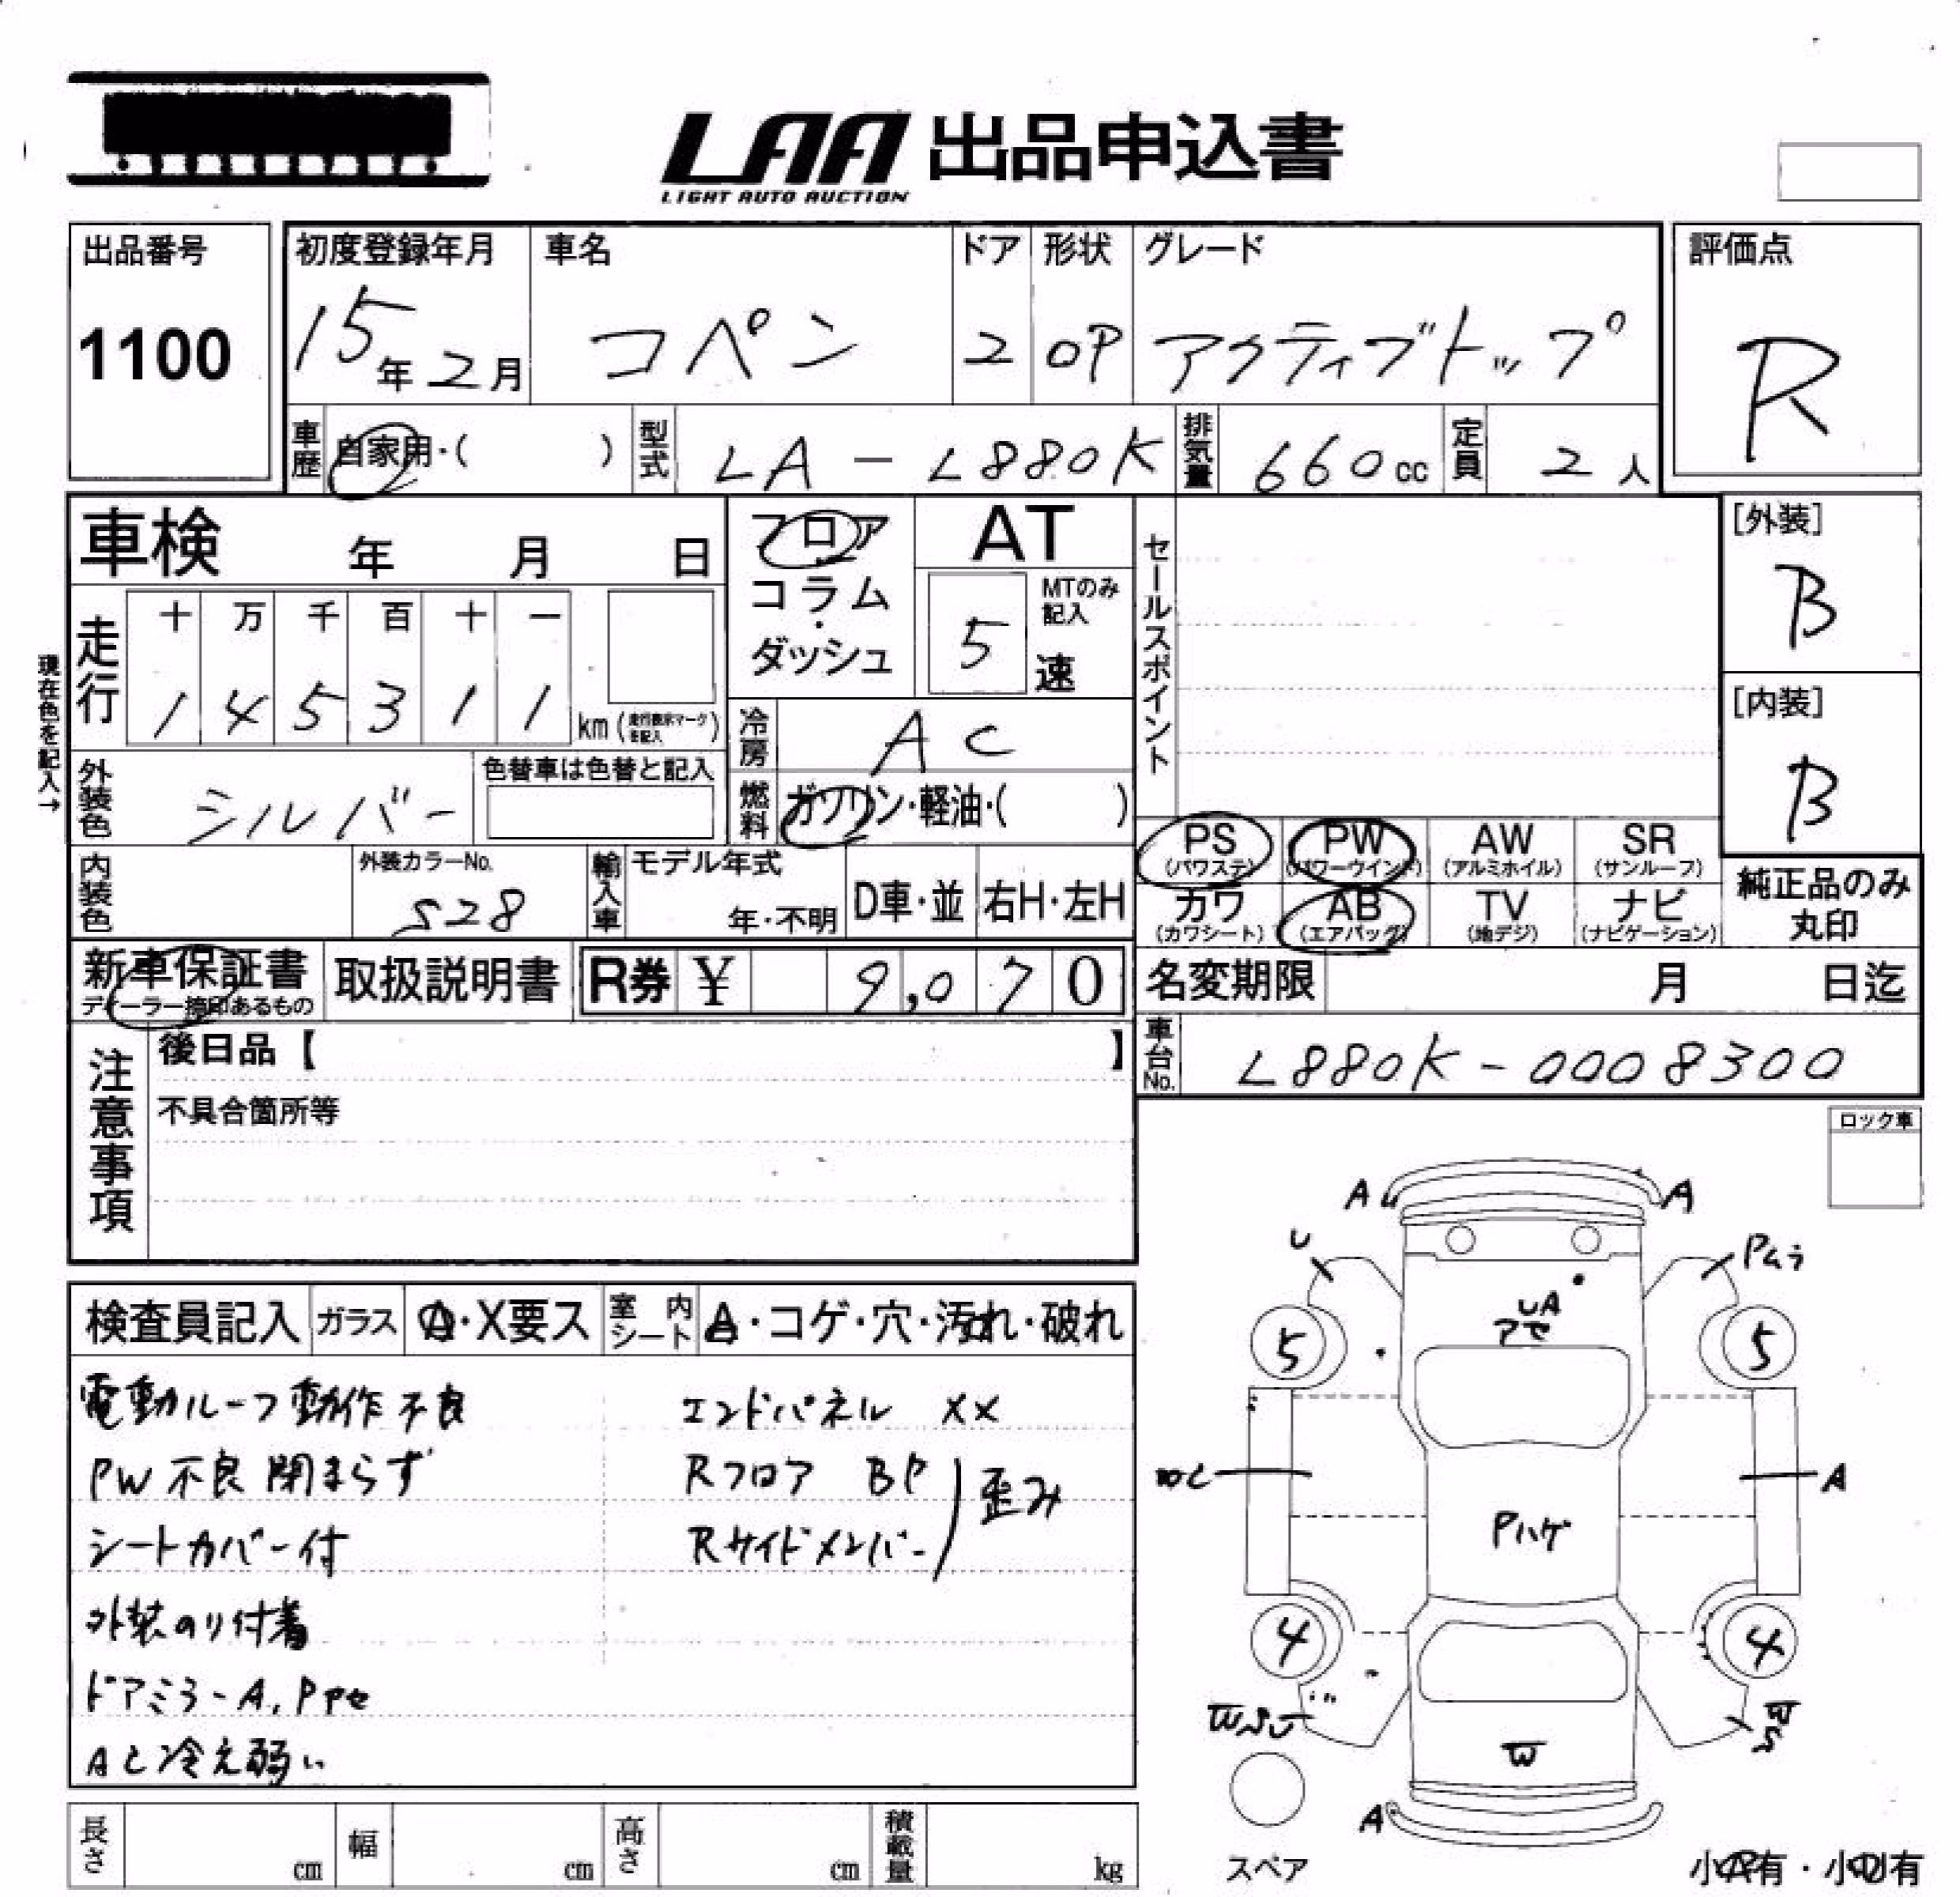 LAA 出品申込書
LIGHT AUTO AUCTION
出品番号
1100
初度登録年月
15年2月
車名
コペン
ドア
2
形状
OP
グレード
アクティブトップ
評価点
R
車歴
自家用・( )
型式
LA-L880K
排気量
660cc
定員
2人
車検 年 月 日
フロア
コラム
・
ダッシュ
AT
MTのみ記入
5速
セールスポイント
[外装]
B
[内装]
B
現在色を記入→
走行
十 万 千 百 十 一
1 4 5 3 1 1
km(走行表示マークを記入)
冷房
AC
燃料
ガソリン・軽油・( )
外装色
シルバー
色替車は色替と記入
内装色
外装カラーNo.
S28
輸入車
モデル年式
年・不明
D車・並
右H・左H
PS
(パワステ)
PW
(パワーウインド)
AW
(アルミホイル)
SR
(サンルーフ)
カワ
(カワシート)
AB
(エアバッグ)
TV
(地デジ)
ナビ
(ナビゲーション)
純正品のみ
丸印
新車保証書
ディーラー捺印あるもの
取扱説明書
R券 ¥ 9,070
名変期限 月 日迄
車台No.
L880K-0008300
注意事項
後日品【 】
不具合箇所等
ロック車
検査員記入
ガラス
A・X要ス
室内シート
A・コゲ・穴・汚れ・破れ
電動ルーフ動作不良
PW不良 閉まらず
シートカバー付
外装のり付着
ドアミラーA,Pアセ
AC冷え弱い
エンドパネル XX
Rフロア BP
Rサイドメンバー
歪み
A
A
U
Pムラ
UA
アセ
5
5
A
Pハゲ
4
4
W
S
W
A
スペア
長さ cm
幅 cm
高さ cm
積載量 kg
小A有・小U有